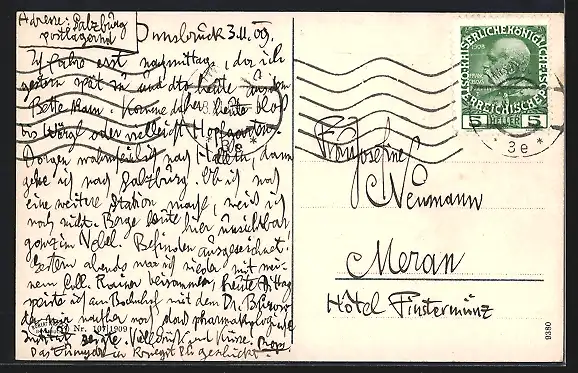 Adresse: Salzburg
postlagernd
Innsbruck 3.11.09.
Ich fahre erst nachmittags, da ich
gestern spät zu und dto heute aus dem
Bette kam. Komme daher heute bloß
bis Wörgl oder vielleicht Hopfgarten.
Morgen wahrscheinlich nach Hallein, dann
gehe ich nach Salzburg. Ob ich noch
eine weitere Station mache, weiß ich
noch nicht. Berge heute hier unsichtbar
ganz im Nebel. Befinden ausgezeichnet.
Gestern abends war ich wieder mit mei-
nem Coll. Rainer beisammen, heute Mittag
speiste ich am Bahnhof mit dem Dr.
der mir nachher noch das pharmakologische
Institut zeigte. Handdruck und Küsse.
Das
Nr. 107 1909
KAISERLICHE KÖNIGLICHE
ÖSTERREICHISCHE POST
1908
5 HELLER 5
* 3e *
Frau Josefine
Neumann
Meran
Hôtel Finstermünz
9380